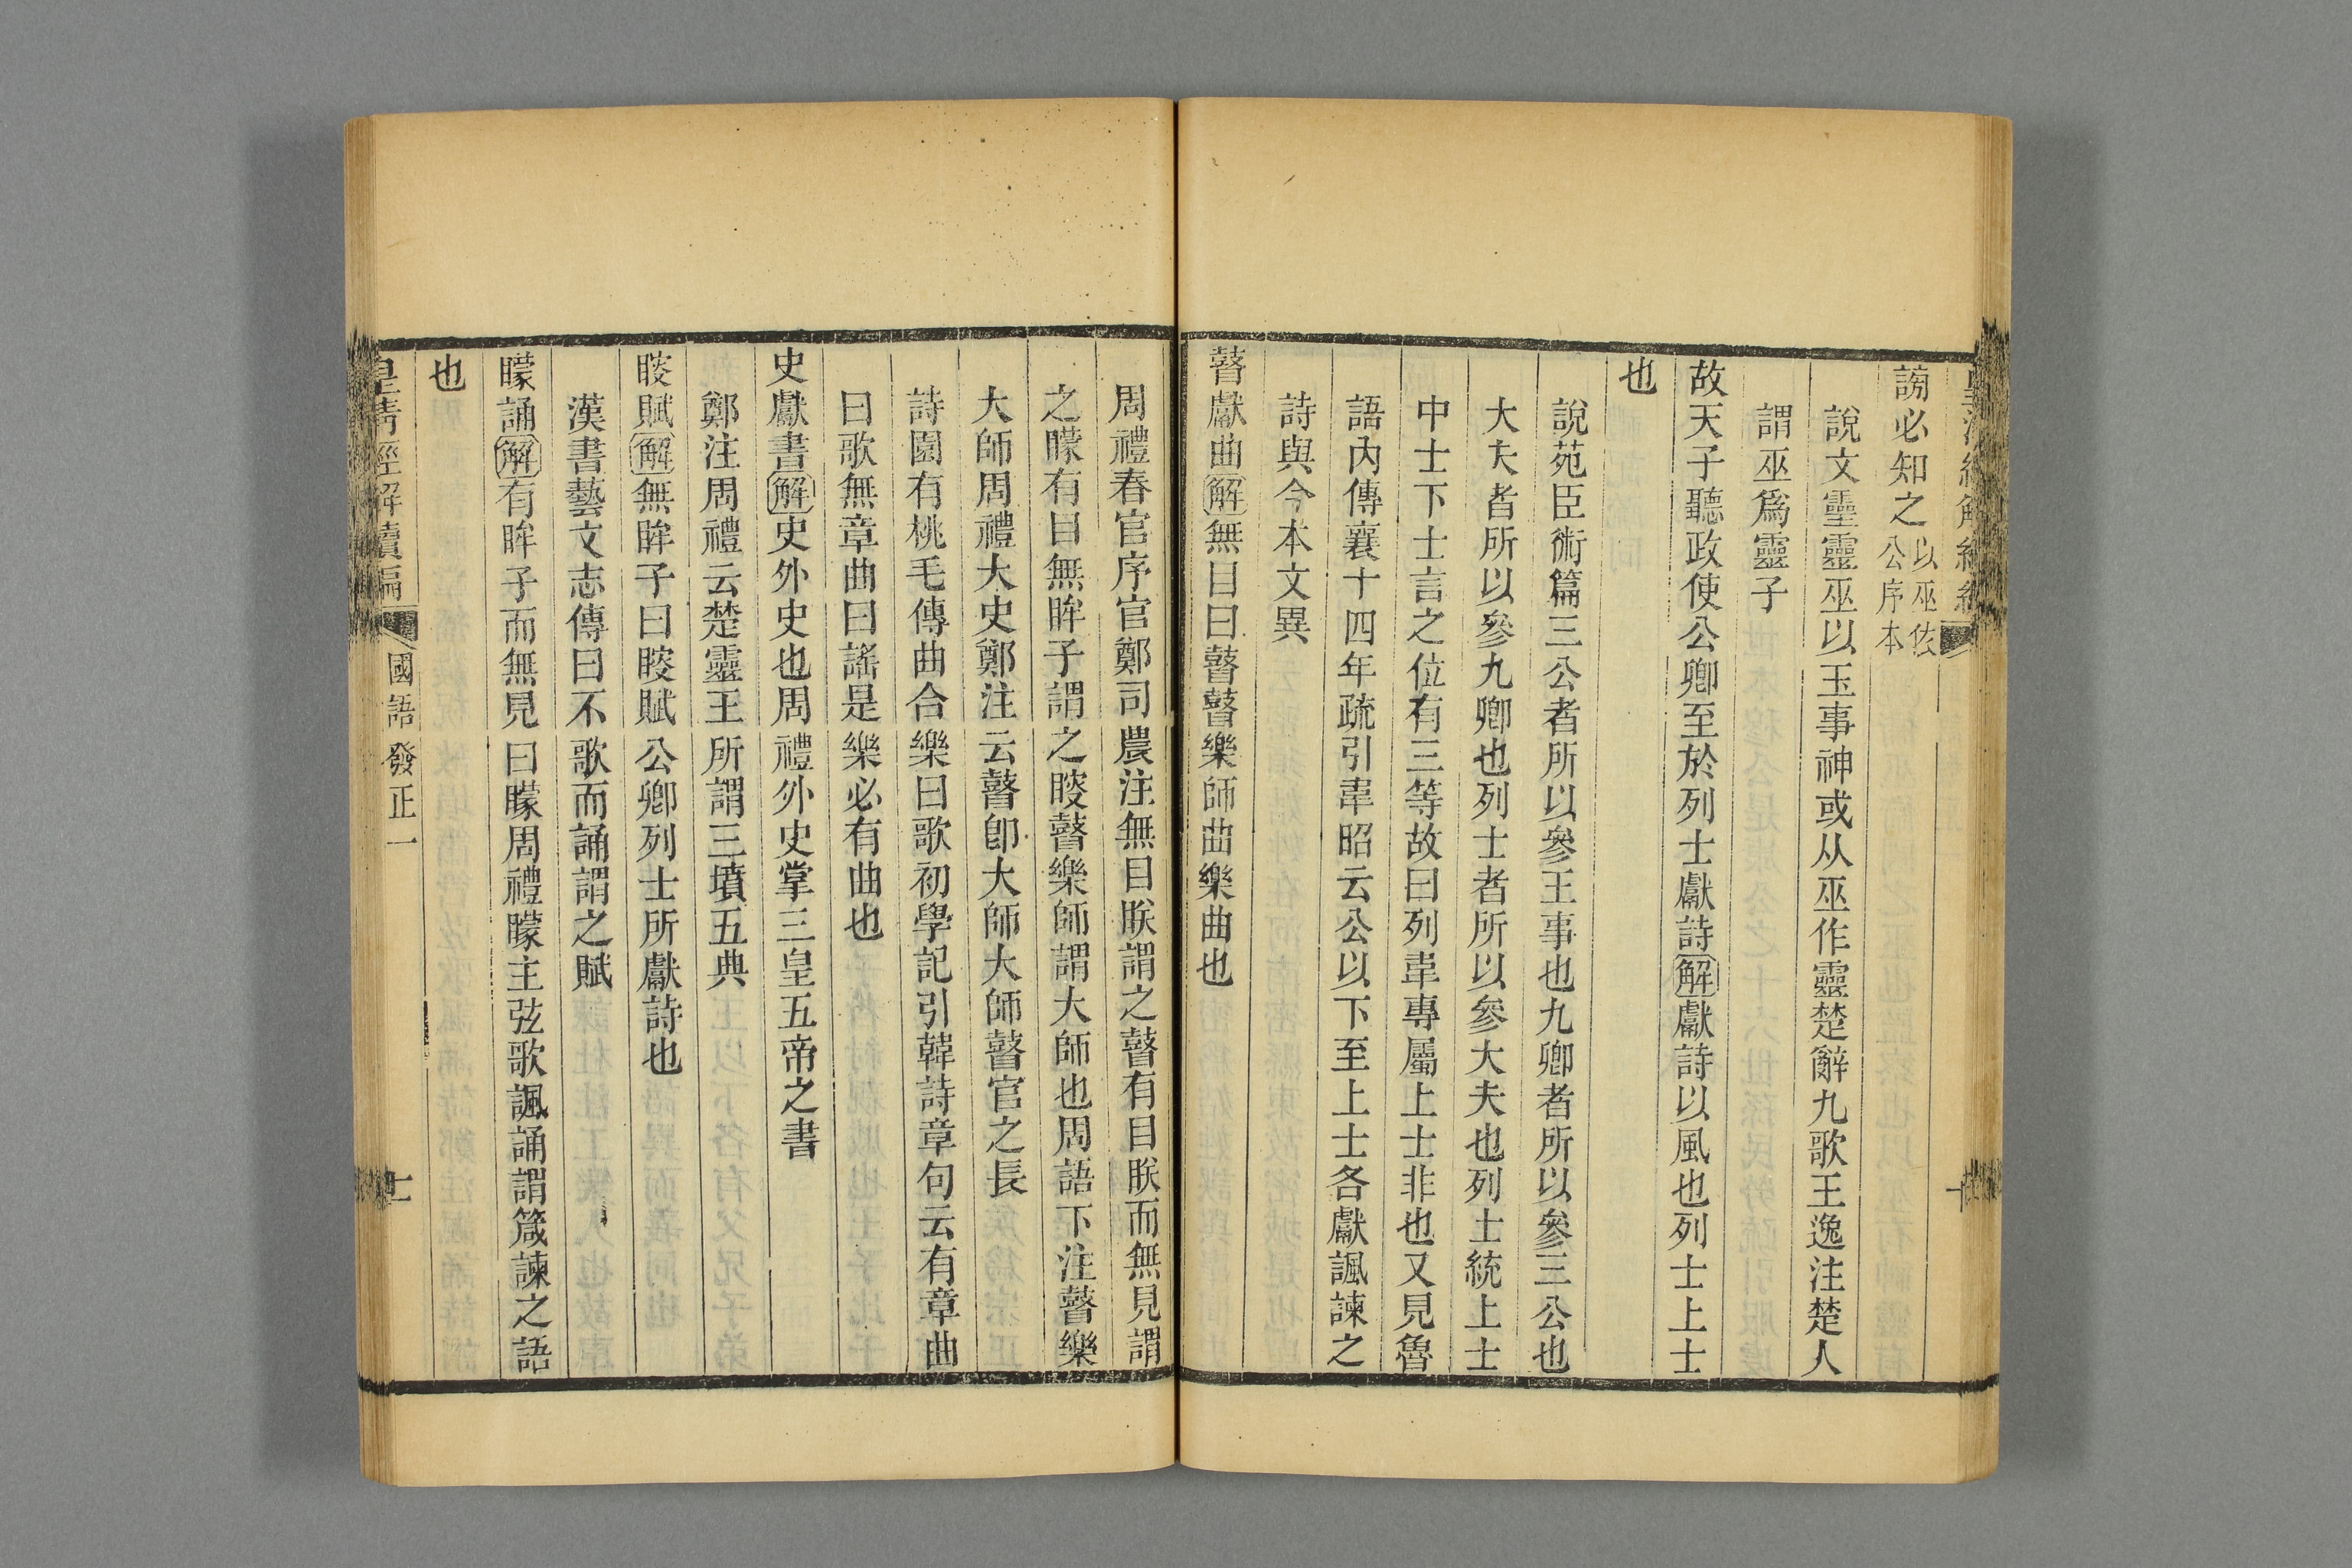 謗必知之以巫佐公序本
說文靈靈巫以玉事神或从巫作靈楚辭九歌王逸注楚人
謂巫爲靈子
故天子聽政使公卿至於列士獻詩解獻詩以風也列士上士
也
說苑臣術篇三公者所以參王事也九卿者所以參三公也
大夫者所以參九卿也列士者所以參大夫也列士統上士
中士下士言之位有三等故曰列韋專屬上士非也又見魯
語內傳襄十四年疏引韋昭云公以下至上士各獻諷諫之
詩與今本文異
瞽獻曲解無目曰瞽瞽樂師曲樂曲也
周禮春官序官鄭司農注無目眹謂之瞽有目眹而無見謂
之矇有目無眸子謂之瞍瞽樂師謂大師也周語下注瞽樂
大師周禮大史鄭注云瞽卽大師大師瞽官之長
詩園有桃毛傳曲合樂曰歌初學記引韓詩章句云有章曲
曰歌無章曲曰謠是樂必有曲也
史獻書解史外史也周禮外史掌三皇五帝之書
鄭注周禮云楚靈王所謂三墳五典
瞍賦解無眸子曰瞍賦公卿列士所獻詩也
漢書藝文志傳曰不歌而誦謂之賦
矇誦解有眸子而無見曰矇周禮矇主弦歌諷誦謂箴諫之語
也
皇清經解續編 國語發正一